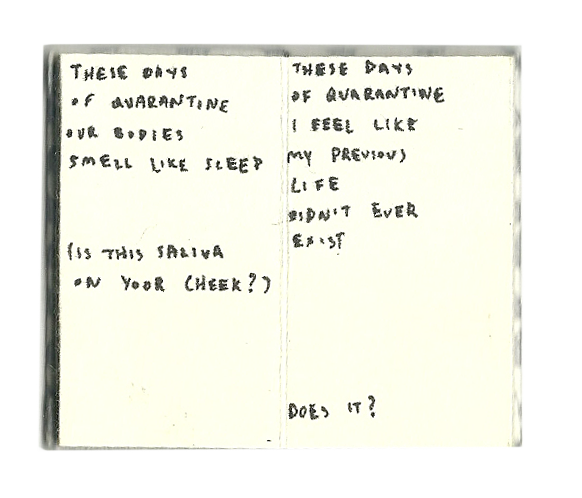 THESE DAYS
OF QUARANTINE
OUR BODIES
SMELL LIKE SLEEP
(IS THIS SALIVA
ON YOUR CHEEK?)
THESE DAYS
OF QUARANTINE
I FEEL LIKE
MY PREVIOUS
LIFE
DIDN'T EVER
EXIST
DOES IT?